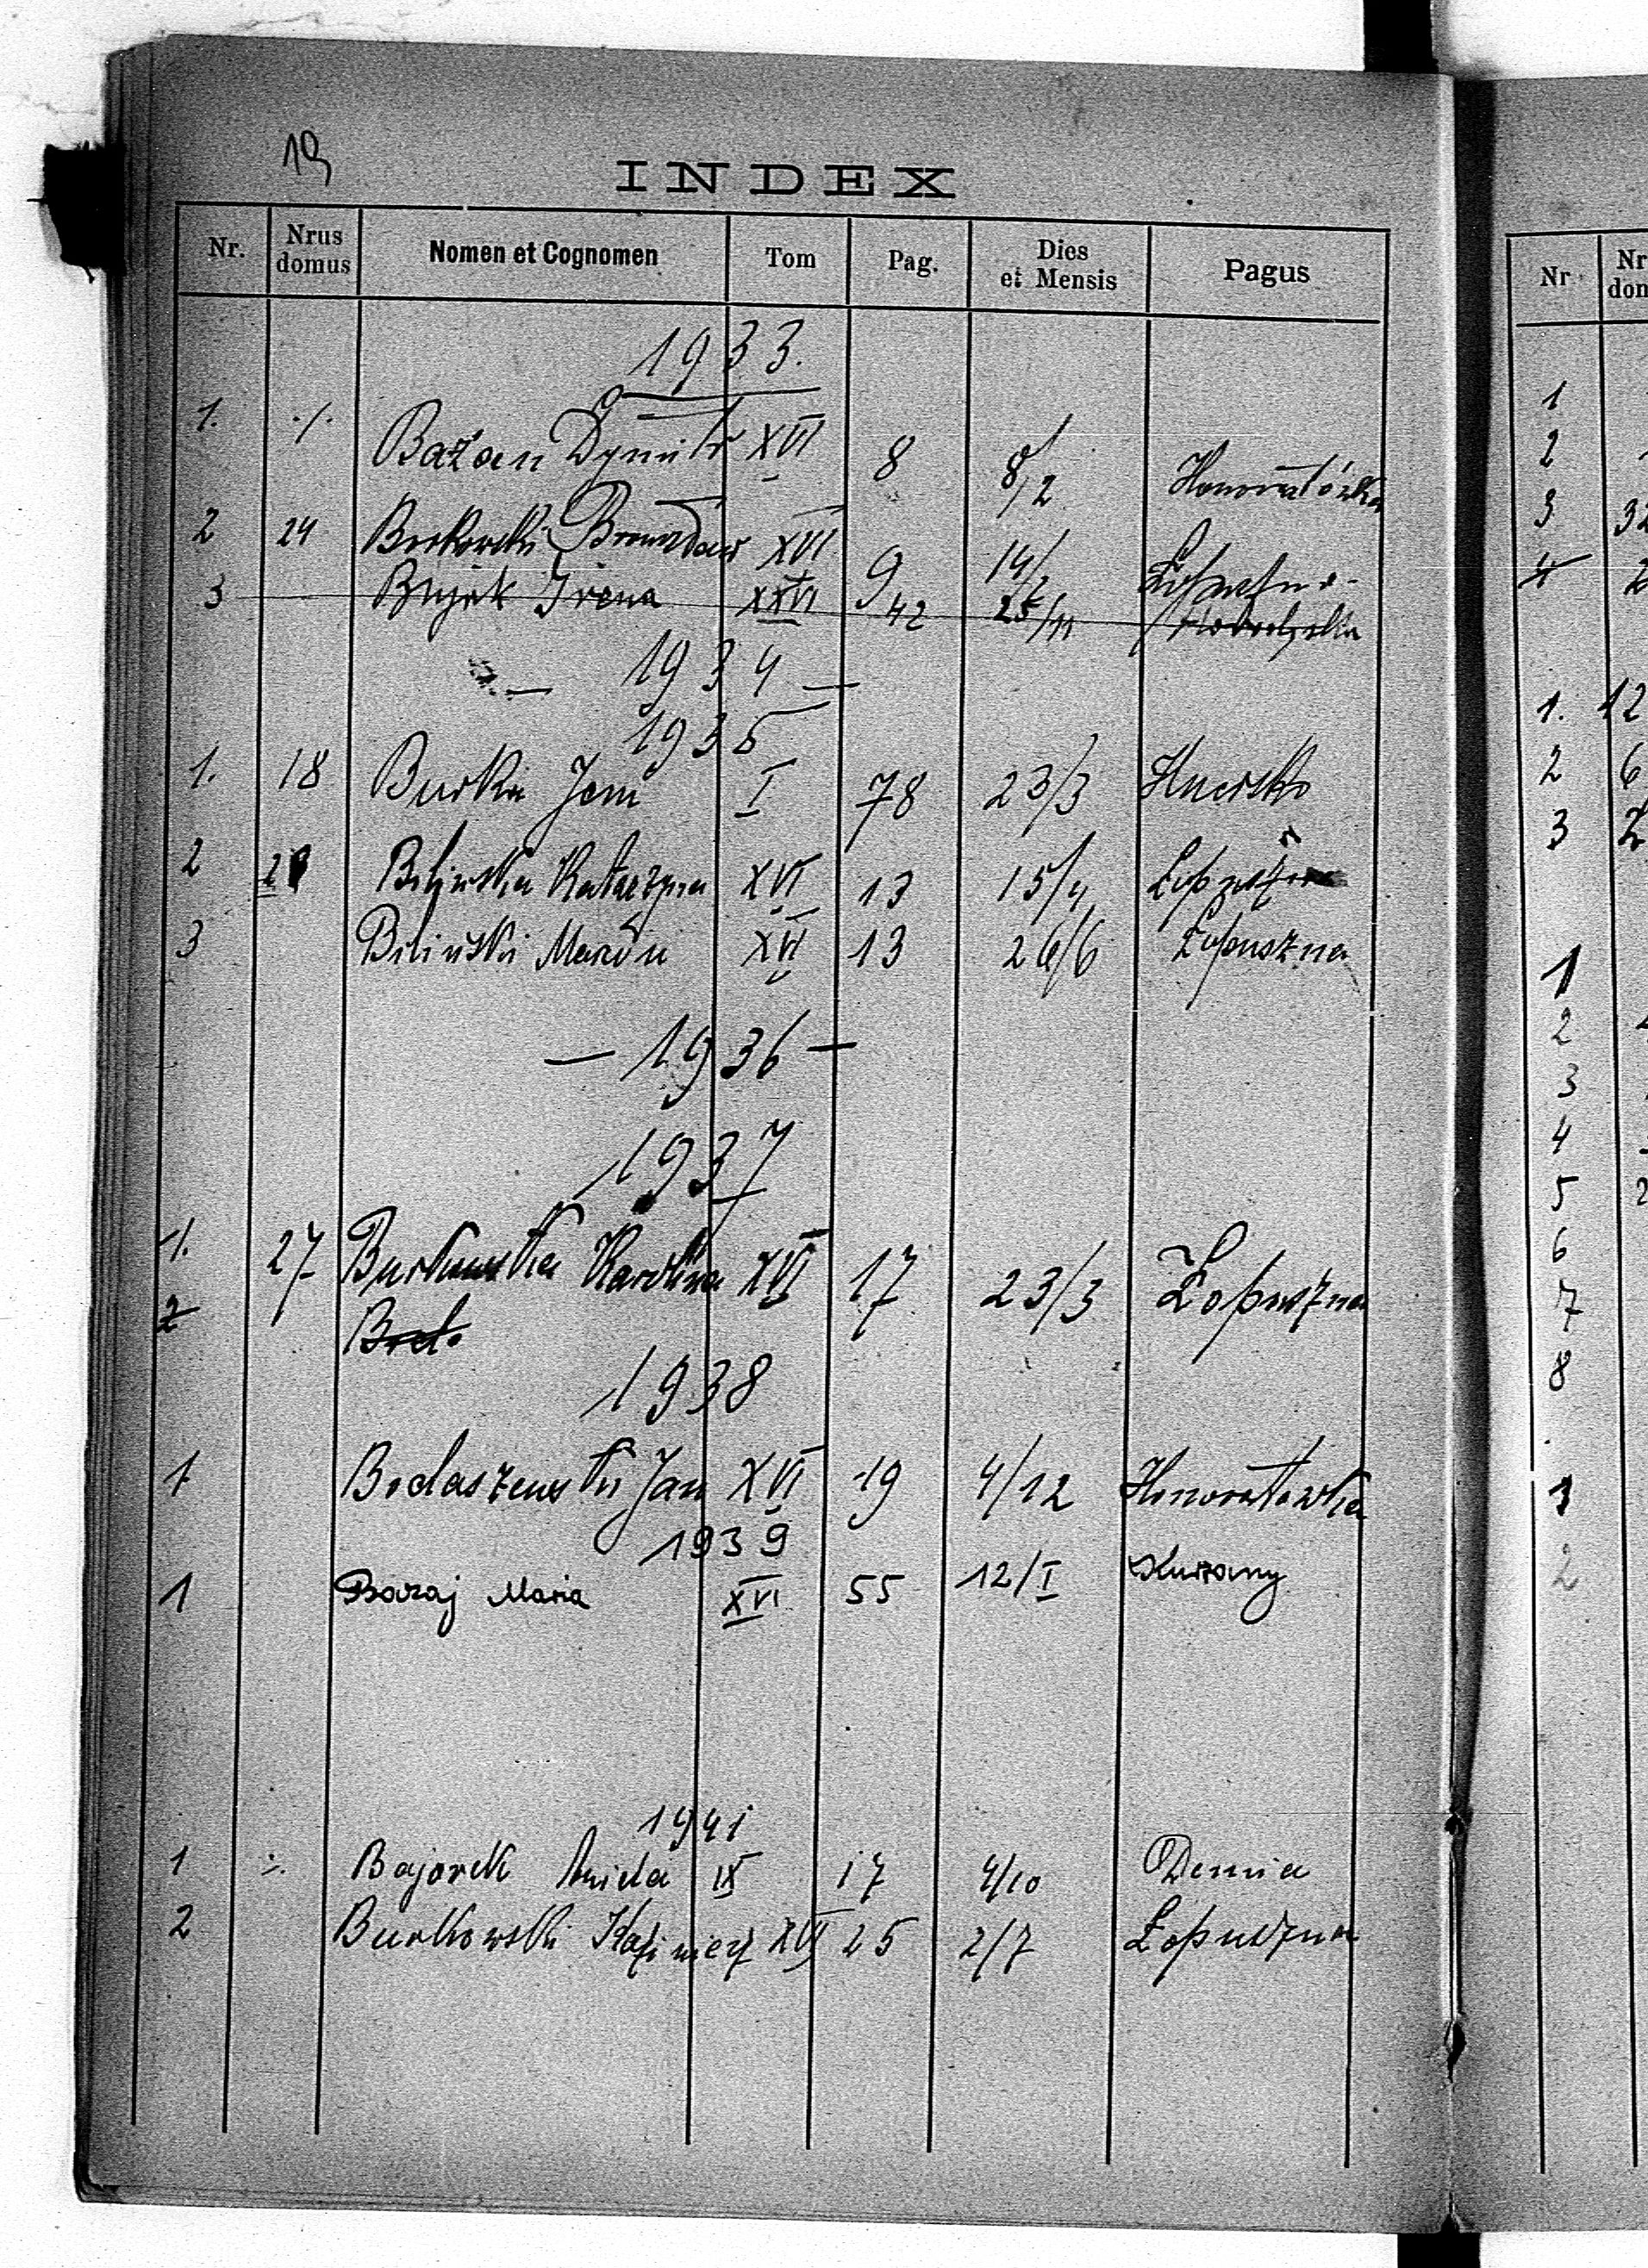 19
INDEX
Nr. Nrus domus Nomen et Cognomen Tom Pag. Dies et Mensis Pagus
1933.
1. ./. Bażan Dymitr XVI 8 8/2 Honoratówka
2 24 Borkowski Bronisław XVI 9 14/2
3 Bujak Irena XXVI 42 25/11
— 1934 —
1935
1. 18 Burka Jan I 78 23/3
2 Bilińska Katarzyna XVI 13 15/4 Łopuszna
3 Biliński Marcin XVI 13 26/6 Łopuszna
— 1936 —
1937
1. 27 Burkowska Karolina XVI 17 23/3 Łopuszna
2
1938
1 Bodaszewski Jan XVI 19 4/12 Honoratówka
1939
1 Baraj Maria XVI 55 12/I Kurzany
1941
1 ./. Bajorek Aniela IX 17 4/10 Demnia
2 Burkowski Kazimierz XVI 25 2/7 Łopuszna
Nr
1
2
3 32
4 2
1. 12
2 6
3 2
1
2
3
4
5 2
6
7
8
1
2